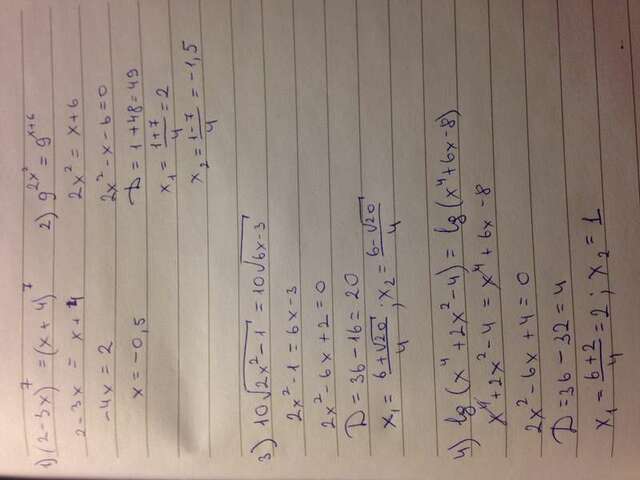 1) (2-3x)⁷ = (x+4)⁷
2-3x = x+4
-4x = 2
x = -0,5
2) 9^(2x²) = 9^(x+6)
2x² = x+6
2x²-x-6=0
D = 1+48=49
x₁ = (1+7)/4 = 2
x₂ = (1-7)/4 = -1,5
3) 10√(2x²-1) = 10√(6x-3)
2x²-1 = 6x-3
2x²-6x+2=0
D = 36-16=20
x₁ = (6+√20)/4 ; x₂ = (6-√20)/4
4) lg(x⁴+2x²-4) = lg(x⁴+6x-8)
x⁴+2x²-4 = x⁴+6x-8
2x²-6x+4=0
D=36-32=4
x₁ = (6+2)/4 = 2 ; x₂ = 1